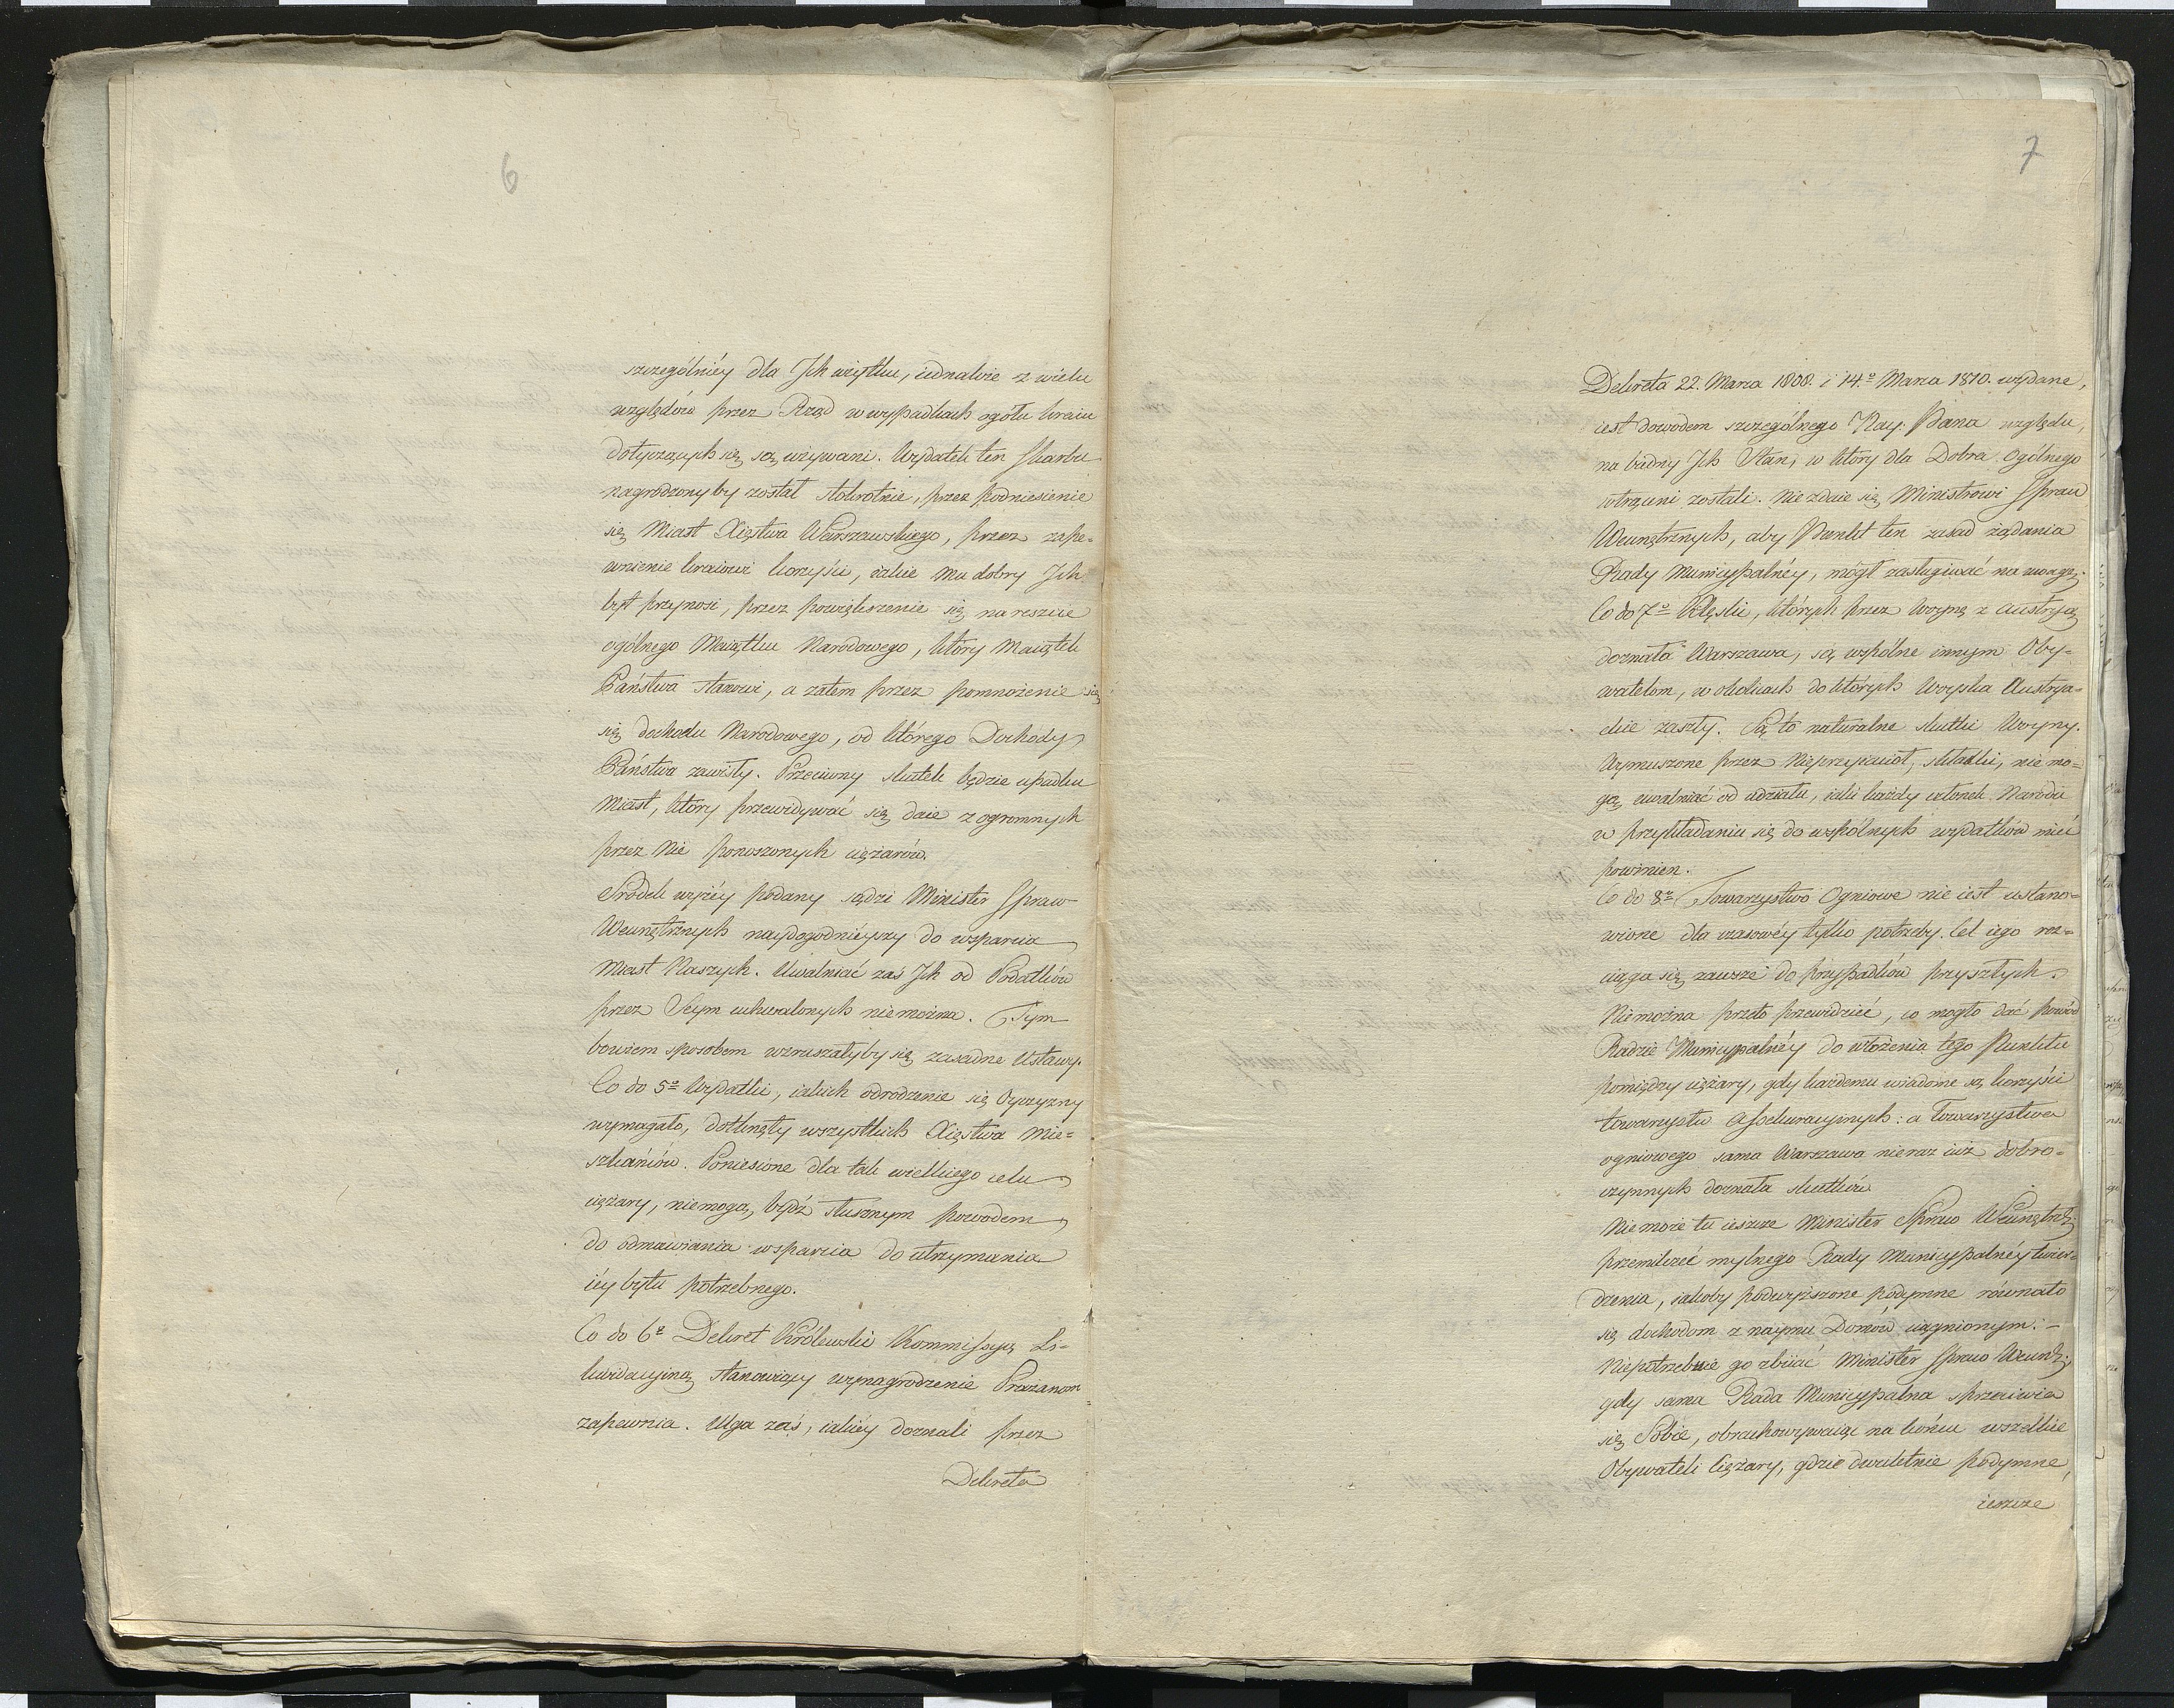 6
szczególniéy dla Jch użytku, iednakże z wielu
względów przez Rząd w wypadkach ogółu kraiu
dotyczących się są używani. Wydatek ten Skarbu
nagrodzonyby został stokrotnie, przez podniesienie
się Miast Xięstwa Warszawskiego, przez zape=
wnienie kraiowi korzyści, iakie mu dobry Jch
byt przynosi, przez powiększenie się nareszcie
ogólnego Maiątku Narodowego, który Maiątek
Państwa stanowi, a zatem przez pomnożenie się
się dochodu Narodowego, od którego Dochody
Państwa zawisły. Przeciwny skutek będzie upadku
Miast, który przewidywać się daie z ogromnych
przez Nie ponoszonych ciężarów.
Srodek wyżéy podany sądzi Minister Spraw
Wewnętrznych naydogodnieyszy do wsparcia
Miast Naszych. Uwalniać zaś Jch od Podatków
przez Seym uchwalonych niemożna. Tym
bowiem sposobem wzruszałyby się zasadne Ustawy.
Co do 5º Wydatki, iakich odrodzenie się Oyczyzny
wymagało, dotknęły wszystkich Xięstwa Mie=
szkańców. Poniesione dla tak wielkiego celu
ciężary, niemogą, bydź słusznym powodem
do odmawiania wsparcia do utrzymania
iéy bytu potrzebnego.
Co do 6º Dekret Królewski Kommissyą Li=
kwidacyiną stanowiący wynagrodzenie Prażanom
zapewnia. Ulga zaś, iakiéy doznali przez
Dekreta
7
Dekreta 22. Marca 1808. i 14º Marca 1810. wydane,
iest dowodem szczególnego Nay. Pana względu,
na biedny Jch Stan, w który dla Dobra ogólnego
wtrąceni zostali. Nie zdaie się Ministrowi Spraw
Wewnętrznych, aby Punkt ten zasad żądania
Rady Municypalnéy, mógł zasługiwać na uwagę.
Co do 7º Klęski, których przez Woynę z Austryą
doznała Warszawa, są wspólne innym Oby=
watelom, w okolicach do których Woyska Austrya=
ckie zaszły. Są to naturalne skutki Woyny.
Wymuszone przez Nieprzyiaciół, składki, nie mo=
gą uwalniać od udziału, iaki każdy członek Narodu
w przykładaniu się do wspólnych wydatków mieć
powinien.
Co do 8º Towarzystwo Ogniowe nie iest ustano=
wione dla czasowéy tylko potrzeby. Cel iego roz=
ciąga się zawsze do przypadków przyszłych.
Niemożna przeto przewidzieć, co mogło dać powód
Radzie Municypalnéy do włożenia tego Punktu
pomiędzy ciężary, gdy każdemu wiadome są korzyści
towarzystw Assekuracyinych: a Towarzystwa
ogniowego sama Warszawa nieraz iuż dobro=
czynnych doznała skutków.
Niemoże tu ieszcze Minister Spraw Wewnętrz:
przemilczéć mylnego Rady Municypalnéy twier=
dzenia, iakoby podwyższone podymne równało
się dochodom z naymu Domów ciągnionym. –
Niepotrzebuie go zbiiać Minister Spraw Wewnt:
gdy sama Rada Municypalna sprzeciwia
się Sobie, obrachowywaiąc na końcu wszelkie
Obywateli Ciężary, gdzie dwuletnie podymne,
ieszcze